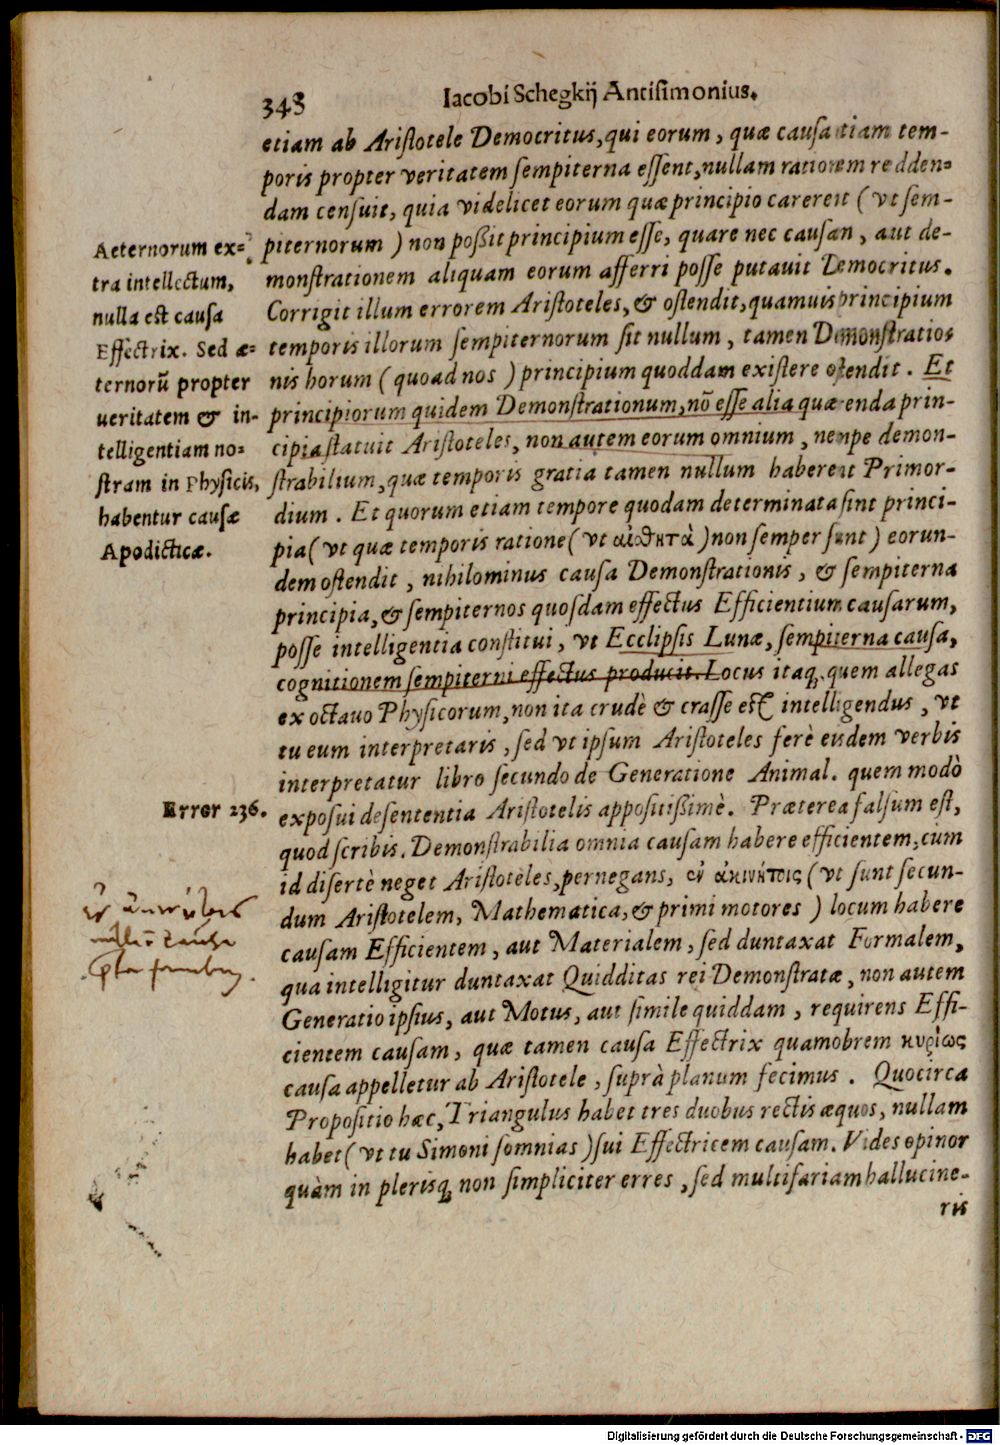 348
Iacobi Schegkij Antisimonius.
etiam ab Aristotele Democritus, qui eorum, quæ causa etiam tem-
poris propter veritatem sempiterna essent, nullam rationem redden-
dam censuit, quia videlicet eorum quæ principio carerent (vt sem-
piternorum) non poßit principium esse, quare nec causan, aut de-
monstrationem aliquam eorum afferri posse putauit Democritus.
Corrigit illum errorem Aristoteles, & ostendit, quamuis principium
temporis illorum sempiternorum sit nullum, tamen Demonstratio-
nis horum (quoad nos) principium quoddam existere ostendit. Et
principiorum quidem Demonstrationum, nō esse alia quærenda prin-
cipia statuit Aristoteles, non autem eorum omnium, nempe demon-
strabilium, quæ temporis gratia tamen nullum haberent Primor-
dium. Et quorum etiam tempore quodam determinata sint princi-
pia (vt quæ temporis ratione (vt αἰσθητὰ) non semper sunt) eorun-
dem ostendit, nihilominus causa Demonstrationis, & sempiterna
principia, & sempiternos quosdam effectus Efficientium causarum,
posse intelligentia constitui, vt Ecclipsis Lunæ, sempiterna causa,
cognitionem sempiterni effectus producit. Locus itaq; quem allegas
ex octauo Physicorum, non ita crudè & crasse est intelligendus, vt
tu eum interpretaris, sed vt ipsum Aristoteles ferè eisdem verbis
interpretatur libro secundo de Generatione Animal. quem modò
exposui de sententia Aristotelis appositißimè. Præterea falsum est,
quod scribis. Demonstrabilia omnia causam habere efficientem, cum
id disertè neget Aristoteles, pernegans, ἐν ἀκινήτοις (vt sunt secun-
dum Aristotelem, Mathematica, & primi motores) locum habere
causam Efficientem, aut Materialem, sed duntaxat Formalem,
qua intelligitur duntaxat Quidditas rei Demonstratæ, non autem
Generatio ipsius, aut Motus, aut simile quiddam, requirens Effi-
cientem causam, quæ tamen causa Effectrix quamobrem κυρίως
causa appelletur ab Aristotele, suprà planum fecimus. Quocirca
Propositio hæc, Triangulus habet tres duobus rectis æquos, nullam
habet (vt tu Simoni somnias) sui Effectricem causam. Vides opinor
quàm in plerisq; non simpliciter erres, sed multifariam hallucine-
ris
Aeternorum ex-
tra intellectum,
nulla est causa
Effectrix. Sed æ-
ternorū propter
ueritatem & in-
telligentiam no-
stram in Physicis,
habentur causæ
Apodicticæ.
Error 236.
Digitalisierung gefördert durch die Deutsche Forschungsgemeinschaft - DFG